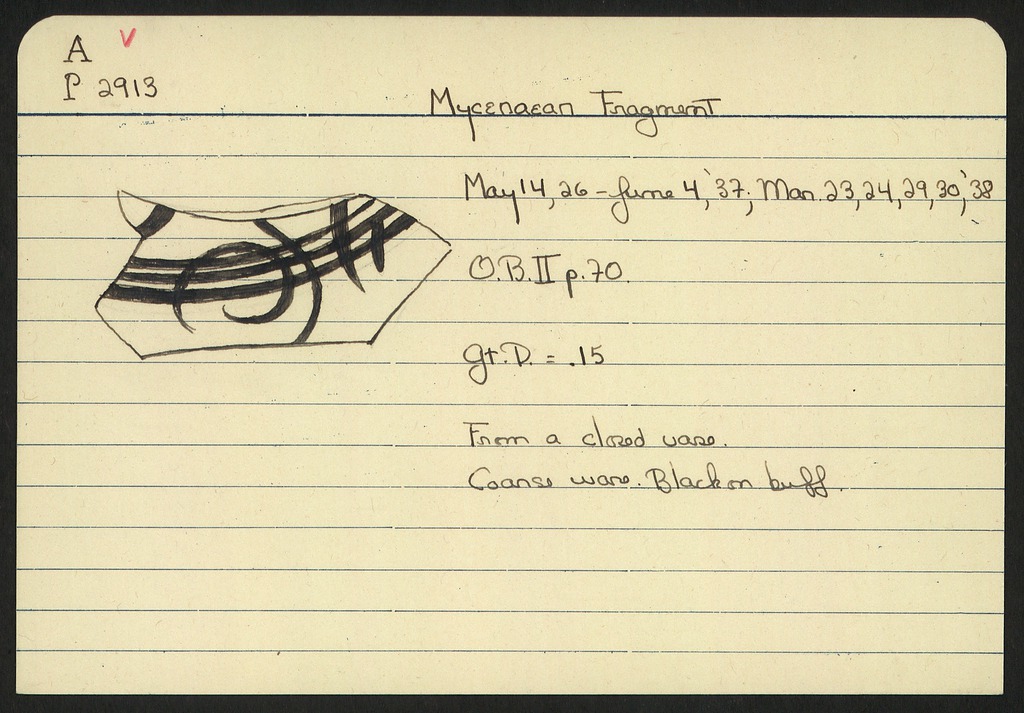 A ✓
P 2913
Mycenaean Fragment
May 14, 26 - June 4, '37; Mar. 23, 24, 29, 30, '38
O.B. II p. 70.
Gt. D. = .15
From a closed vase.
Coarse ware. Black on buff.